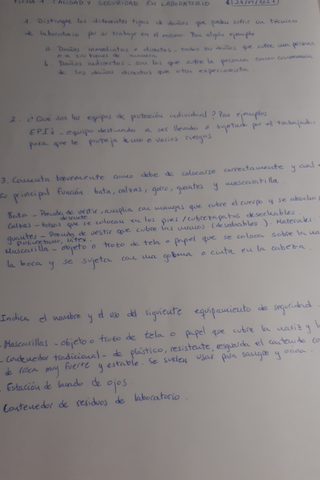 FICHA 7 CALIDAD Y SEGURIDAD EN LABORATORIO
1. Distingue los diferentes tipos de daños que puede sufrir un técnico
de laboratorio por su trabajo en el mismo. Pon algún ejemplo
a. Daños inmediatos o directos, todos los daños que sufre una persona
o a sus bienes de
b. Daños indirectos, son los que sufre la persona como consecuencia
de los daños directos que otros experimenta.
2. ¿Qué son los equipos de protección individual? Pon ejemplos
EPIs - equipo destinado a ser llevado o sujetado por el trabajador
para que le proteja de uno o varios riesgos
3. Comenta brevemente como debe de colocarse correctamente y cual
su principal función bata, calzas, gorro, guantes y mascarilla.
Bata - Prenda de vestir, amplia con mangas que cubre el cuerpo y se abrocha
delante
Calzas - bolsas que se colocan en los pies / cubrezapatos desechables.
guantes - Prenda de vestir que cubre las manos (desechables). Materiales
látex.
Mascarilla - objeto o trozo de tela o papel que se coloca sobre la
la boca y se sujeta con una goma o cinta en la cabeza
Indica el nombre y el uso del siguiente equipamiento de seguridad
Mascarillas - objeto o trozo de tela o papel que cubre la nariz y
Contenedor tradicional - de plástico, resistente, resguarda el contenido
de rosca muy fuerte y estable. Se suelen usar para sangre y orina.
Estación de lavado de ojos
Contenedor de residuos de laboratorio.